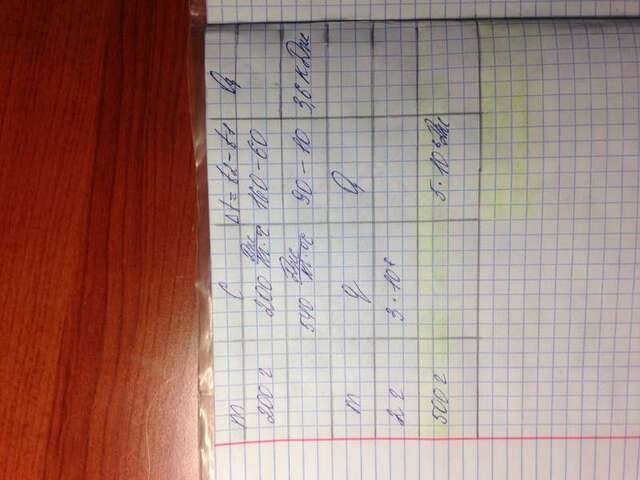 m C Δt = t2 - t1 Q
200 г 200 Дж 160 - 60
540 Дж 90 - 10 3,6 кДж
m q Q
2 г 3 · 10
500 г 5 · 10 Дж